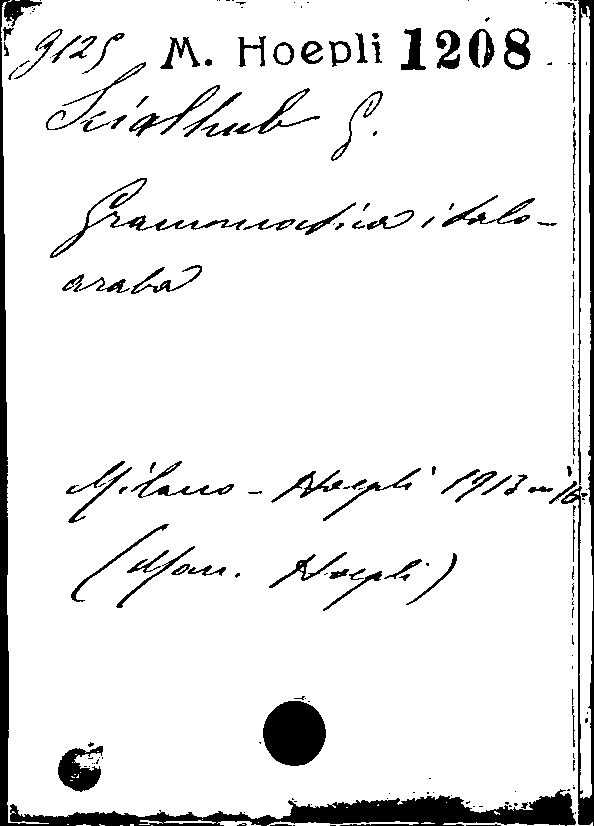 9125 M. Hoepli 1208
Scialhub G.
Grammatica italo-
araba
Milano - Hoepli 1913 in 16°
(Man. Hoepli)